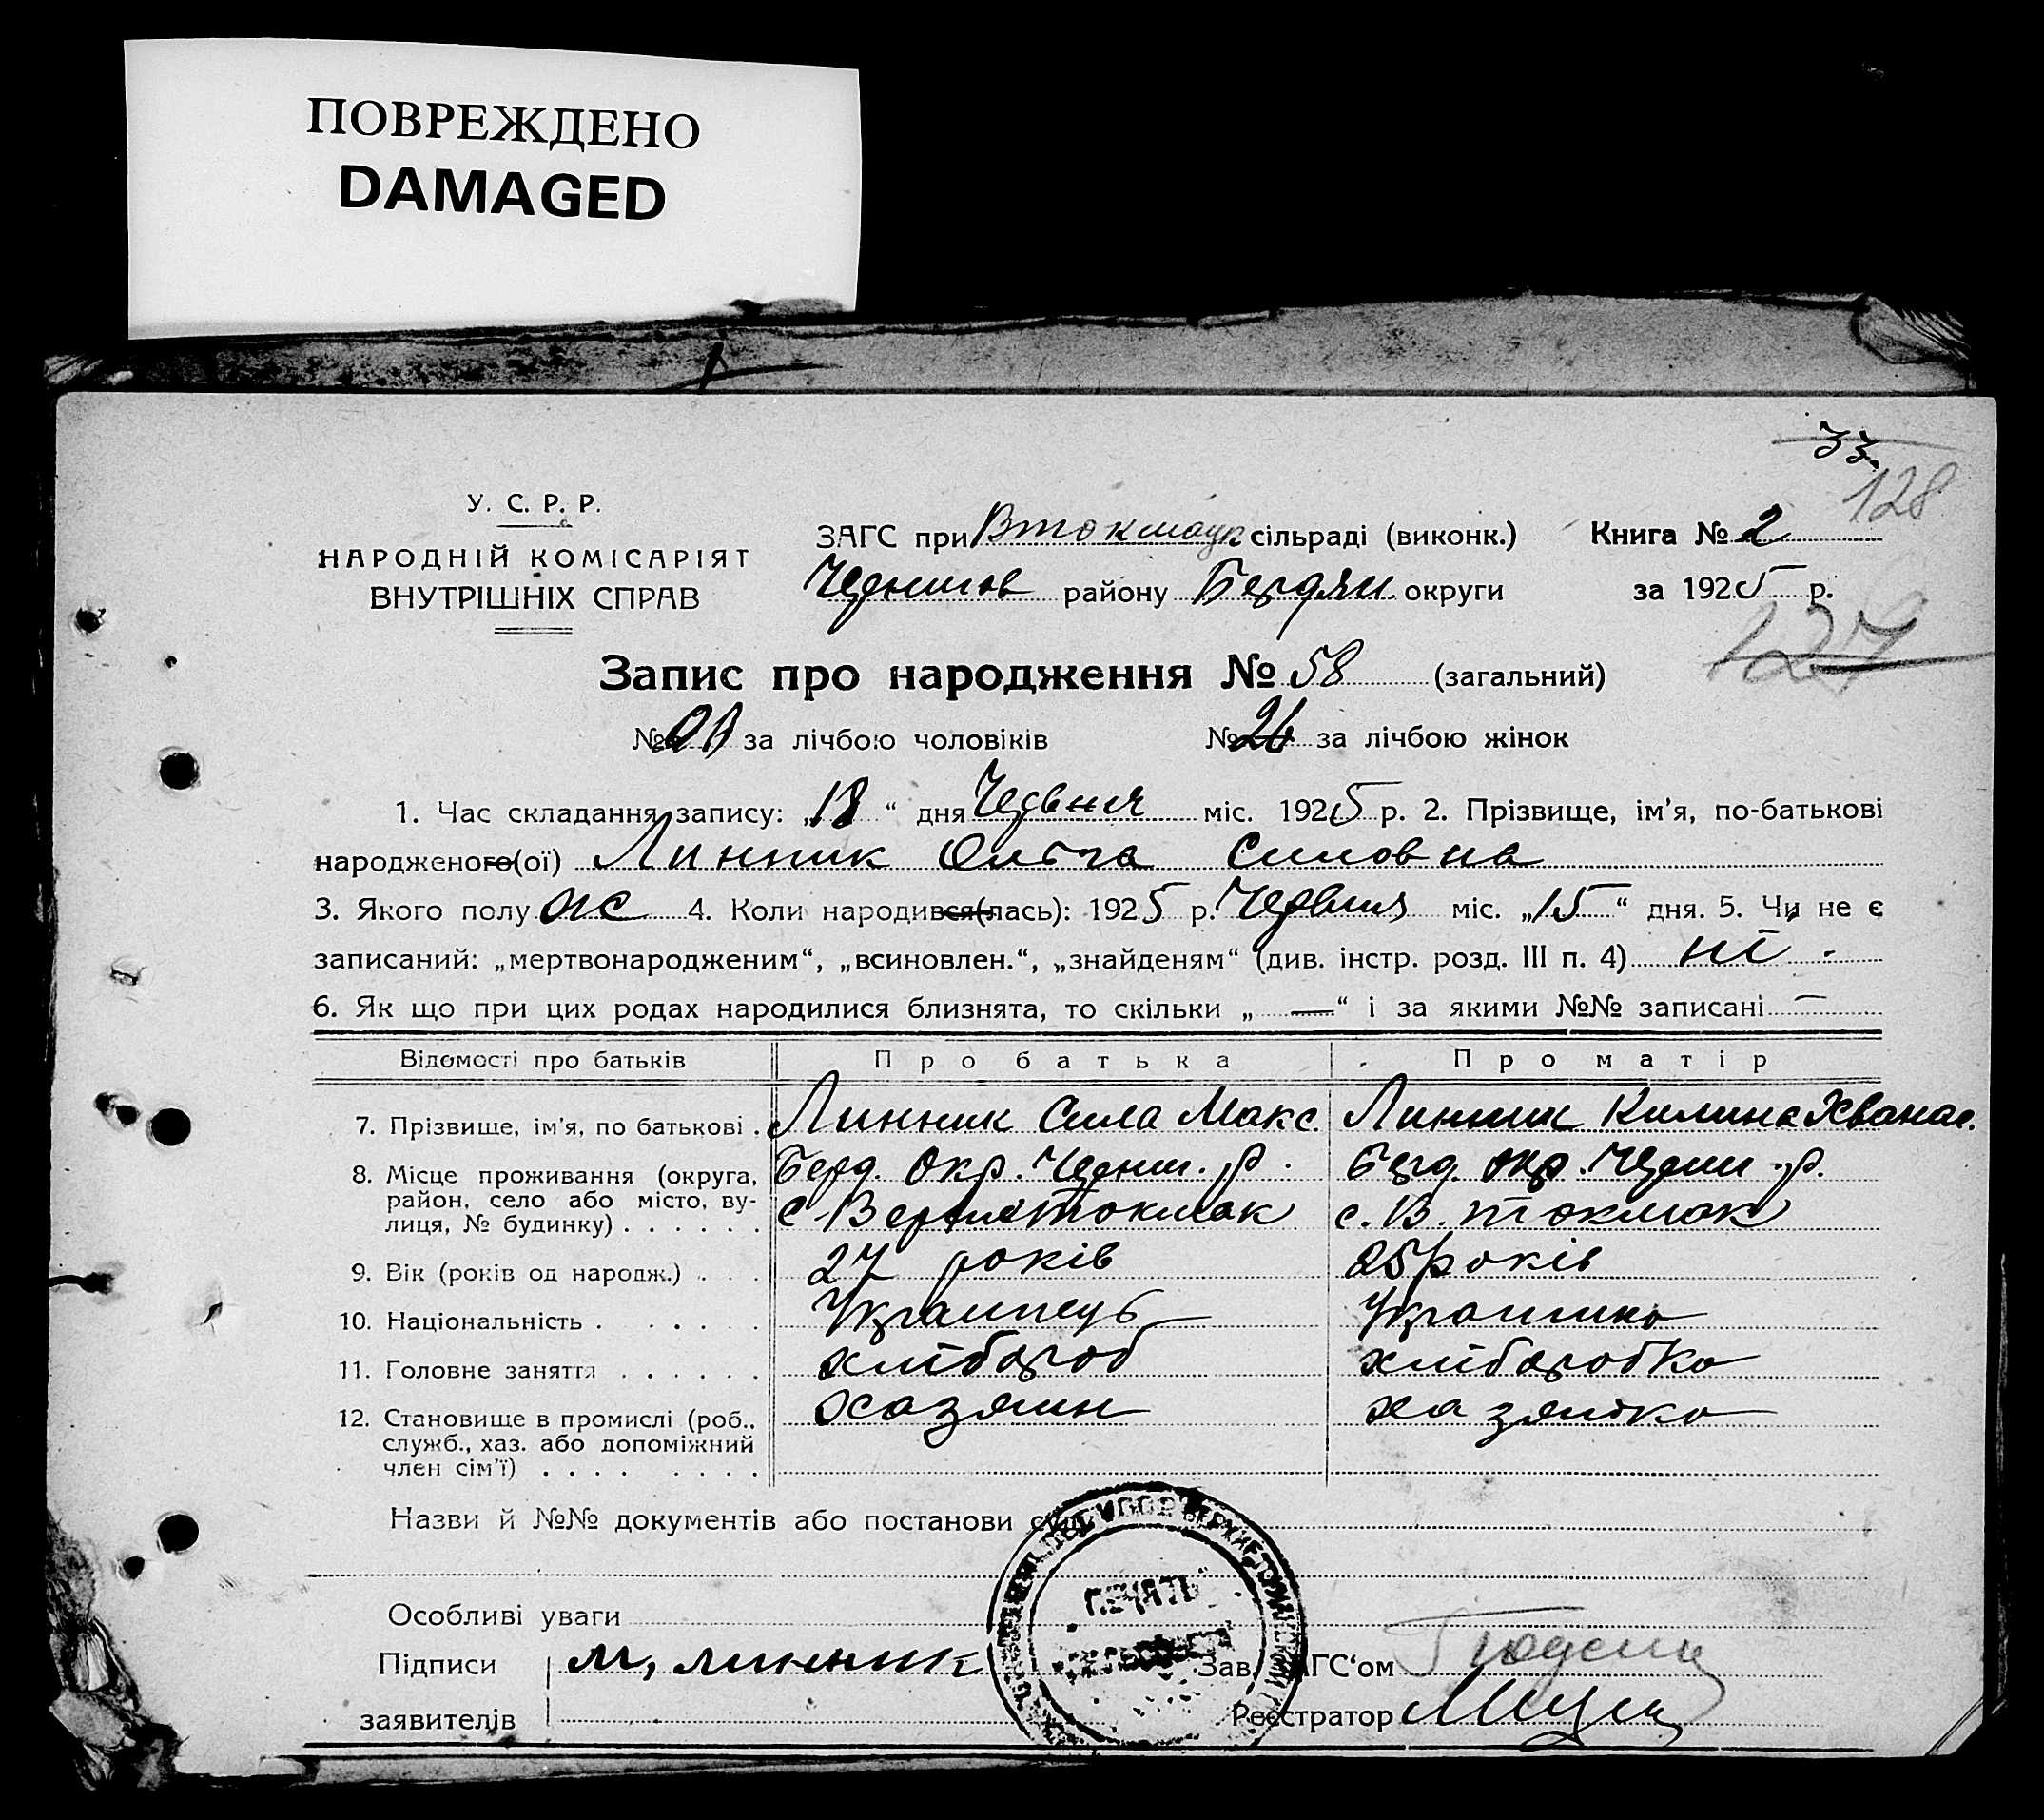 ПОВРЕЖДЕНО
DAMAGED
33
128
У. С. Р. Р.
НАРОДНІЙ КОМІСАРІЯТ
ВНУТРІШНІХ СПРАВ
ЗАГС при Втокмацк сільраді (виконк.) Книга № 2
Чернигов району Бердян. округи за 1925 р.
127
Запис про народження № 58 (загальний)
№ за лічбою чоловіків № 26 за лічбою жінок
1. Час складання запису: „18“ дня Червня міс. 1925 р. 2. Прізвище, ім'я, по-батькові
народженого(ої) Линник Ольга Силовна
3. Якого полу жс 4. Коли народився(лась): 1925 р. Червня міс. „15“ дня. 5. Чи не є
записаний: „мертвонародженим“, „всиновлен.“, „знайденям“ (див. інстр. розд. III п. 4) ні.
6. Як що при цих родах народилися близнята, то скільки „—“ і за якими №№ записані —
Відомості про батьків Про батька Про матір
7. Прізвище, ім'я, по батькові . Линник Сила Макс. Линник Килина Хванас.
8. Місце проживання (округа, Берд. Окр. Черниг. р. Берд. окр. Черниг. р.
район, село або місто, ву-
лиця, № будинку) . . . . . . с Верхнётокмак с. В. токмак
9. Вік (років од народж.) . . 27 років 25 років
10. Національність . . . . . . Українець Українка
11. Головне заняття . . . . . . хлібороб хліборобка
12. Становище в промислі (роб., Хазяин хазяйка
служб., хаз. або допоміжний
член сім'ї) . . . . . . . .
Назви й №№ документів або постанови суду
ПЕЧАТЬ
Особливі уваги
Підписи м, линник Зав. ЗАГС'ом
заявителів Реєстратор